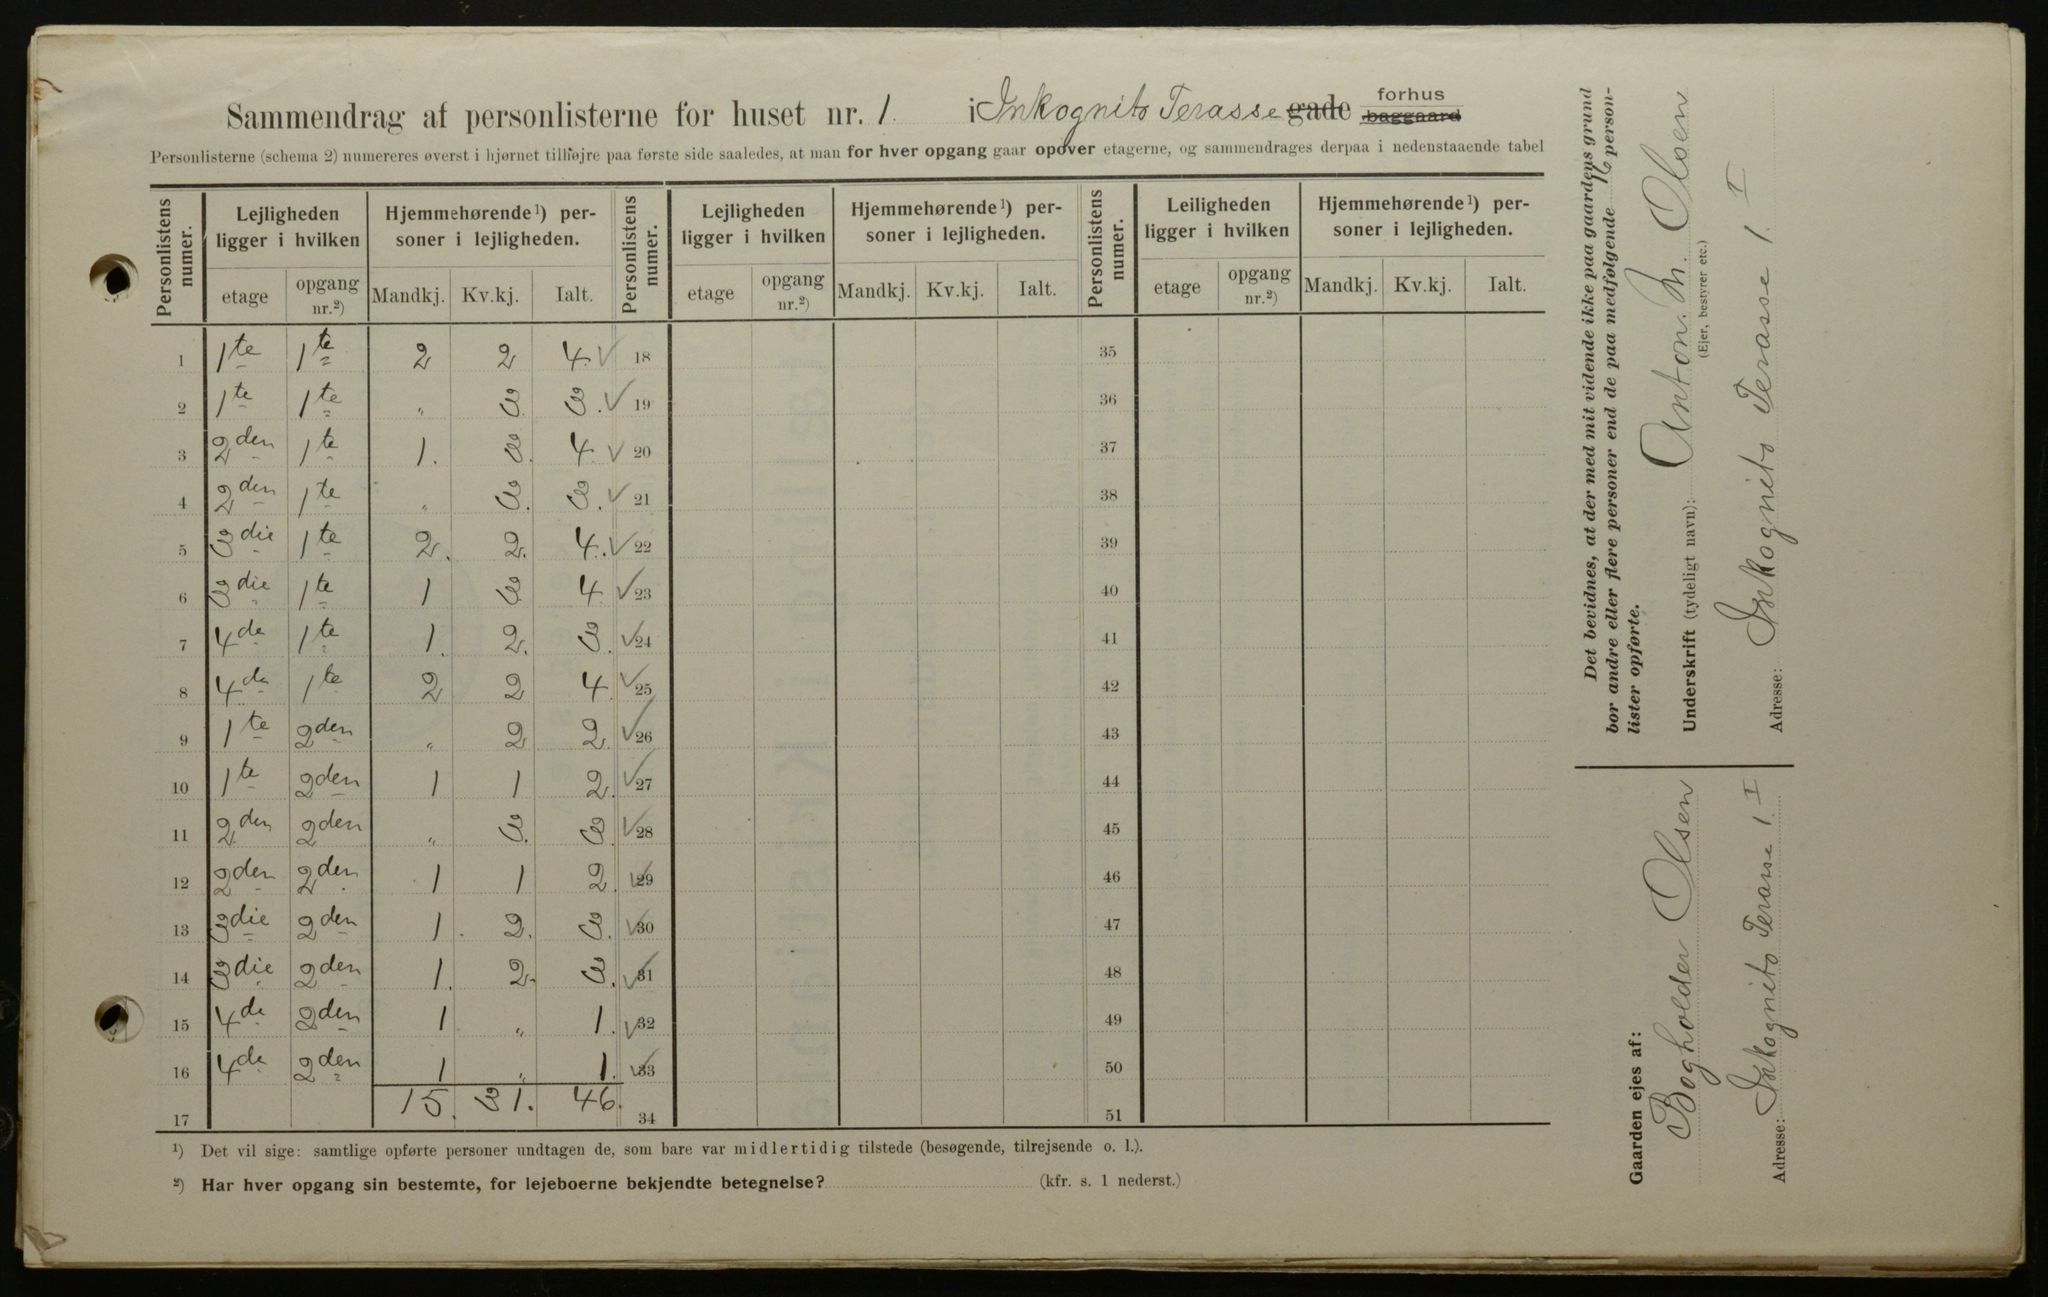 Sammendrag af personlisterne for huset nr. 1. i Inkognito Terasse gade forhus baggaard
Personlisterne (schema 2) numereres øverst i hjørnet tilhøjre paa første side saaledes, at man for hver opgang gaar opover etagerne, og sammendrages derpaa i nedenstaaende tabel
Personlistens numer. Lejligheden ligger i hvilken Hjemmehørende¹) personer i lejligheden. Personlistens numer. Lejligheden ligger i hvilken Hjemmehørende¹) personer i lejligheden. Personlistens numer. Leiligheden ligger i hvilken Hjemmehørende¹) personer i lejligheden.
etage opgang nr.²) Mandkj. Kv.kj. Ialt. etage opgang nr.²) Mandkj. Kv.kj. Ialt. etage opgang nr.²) Mandkj. Kv.kj. Ialt.
1 1te 1te 2 2 4. ✓ 18 35
2 1te 1te „ 3. 3. ✓ 19 36
3 2den 1te 1. 3. 4. ✓ 20 37
4 2den 1te „ 3. 3. ✓ 21 38
5 3die 1te 2. 2. 4. ✓ 22 39
6 3die 1te 1 3. 4 ✓ 23 40
7 4de 1te 1. 2. 3. ✓ 24 41
8 4de 1te 2 2 4. ✓ 25 42
9 1te 2den „ 2 2. ✓ 26 43
10 1te 2den 1 1 2. ✓ 27 44
11 2den 2den „ 3. 3. ✓ 28 45
12 2den 2den. 1 1 2. ✓ 29 46
13 3die 2den 1. 2. 3. ✓ 30 47
14 3die 2den 1. 2. 3. ✓ 31 48
15 4de 2den 1. „ 1. ✓ 32 49
16 4de 2den 1 „ 1. ✓ 33 50
17 15. 31. 46. 34 51
¹) Det vil sige: samtlige opførte personer undtagen de, som bare var midlertidig tilstede (besøgende, tilrejsende o. l.).
²) Har hver opgang sin bestemte, for lejeboerne bekjendte betegnelse? (kfr. s. 1 nederst.)
Det bevidnes, at der med mit vidende ikke paa gaardens grund
bor andre eller flere personer end de paa medfølgende 16 person-
lister opførte.
Underskrift (tydeligt navn): Anton. M. Olsen
(Ejer, bestyrer etc.)
Adresse: Inkognito Terasse 1. I
Gaarden ejes af:
Bogholder Olsen
Adresse: Inkognito Terasse 1. I